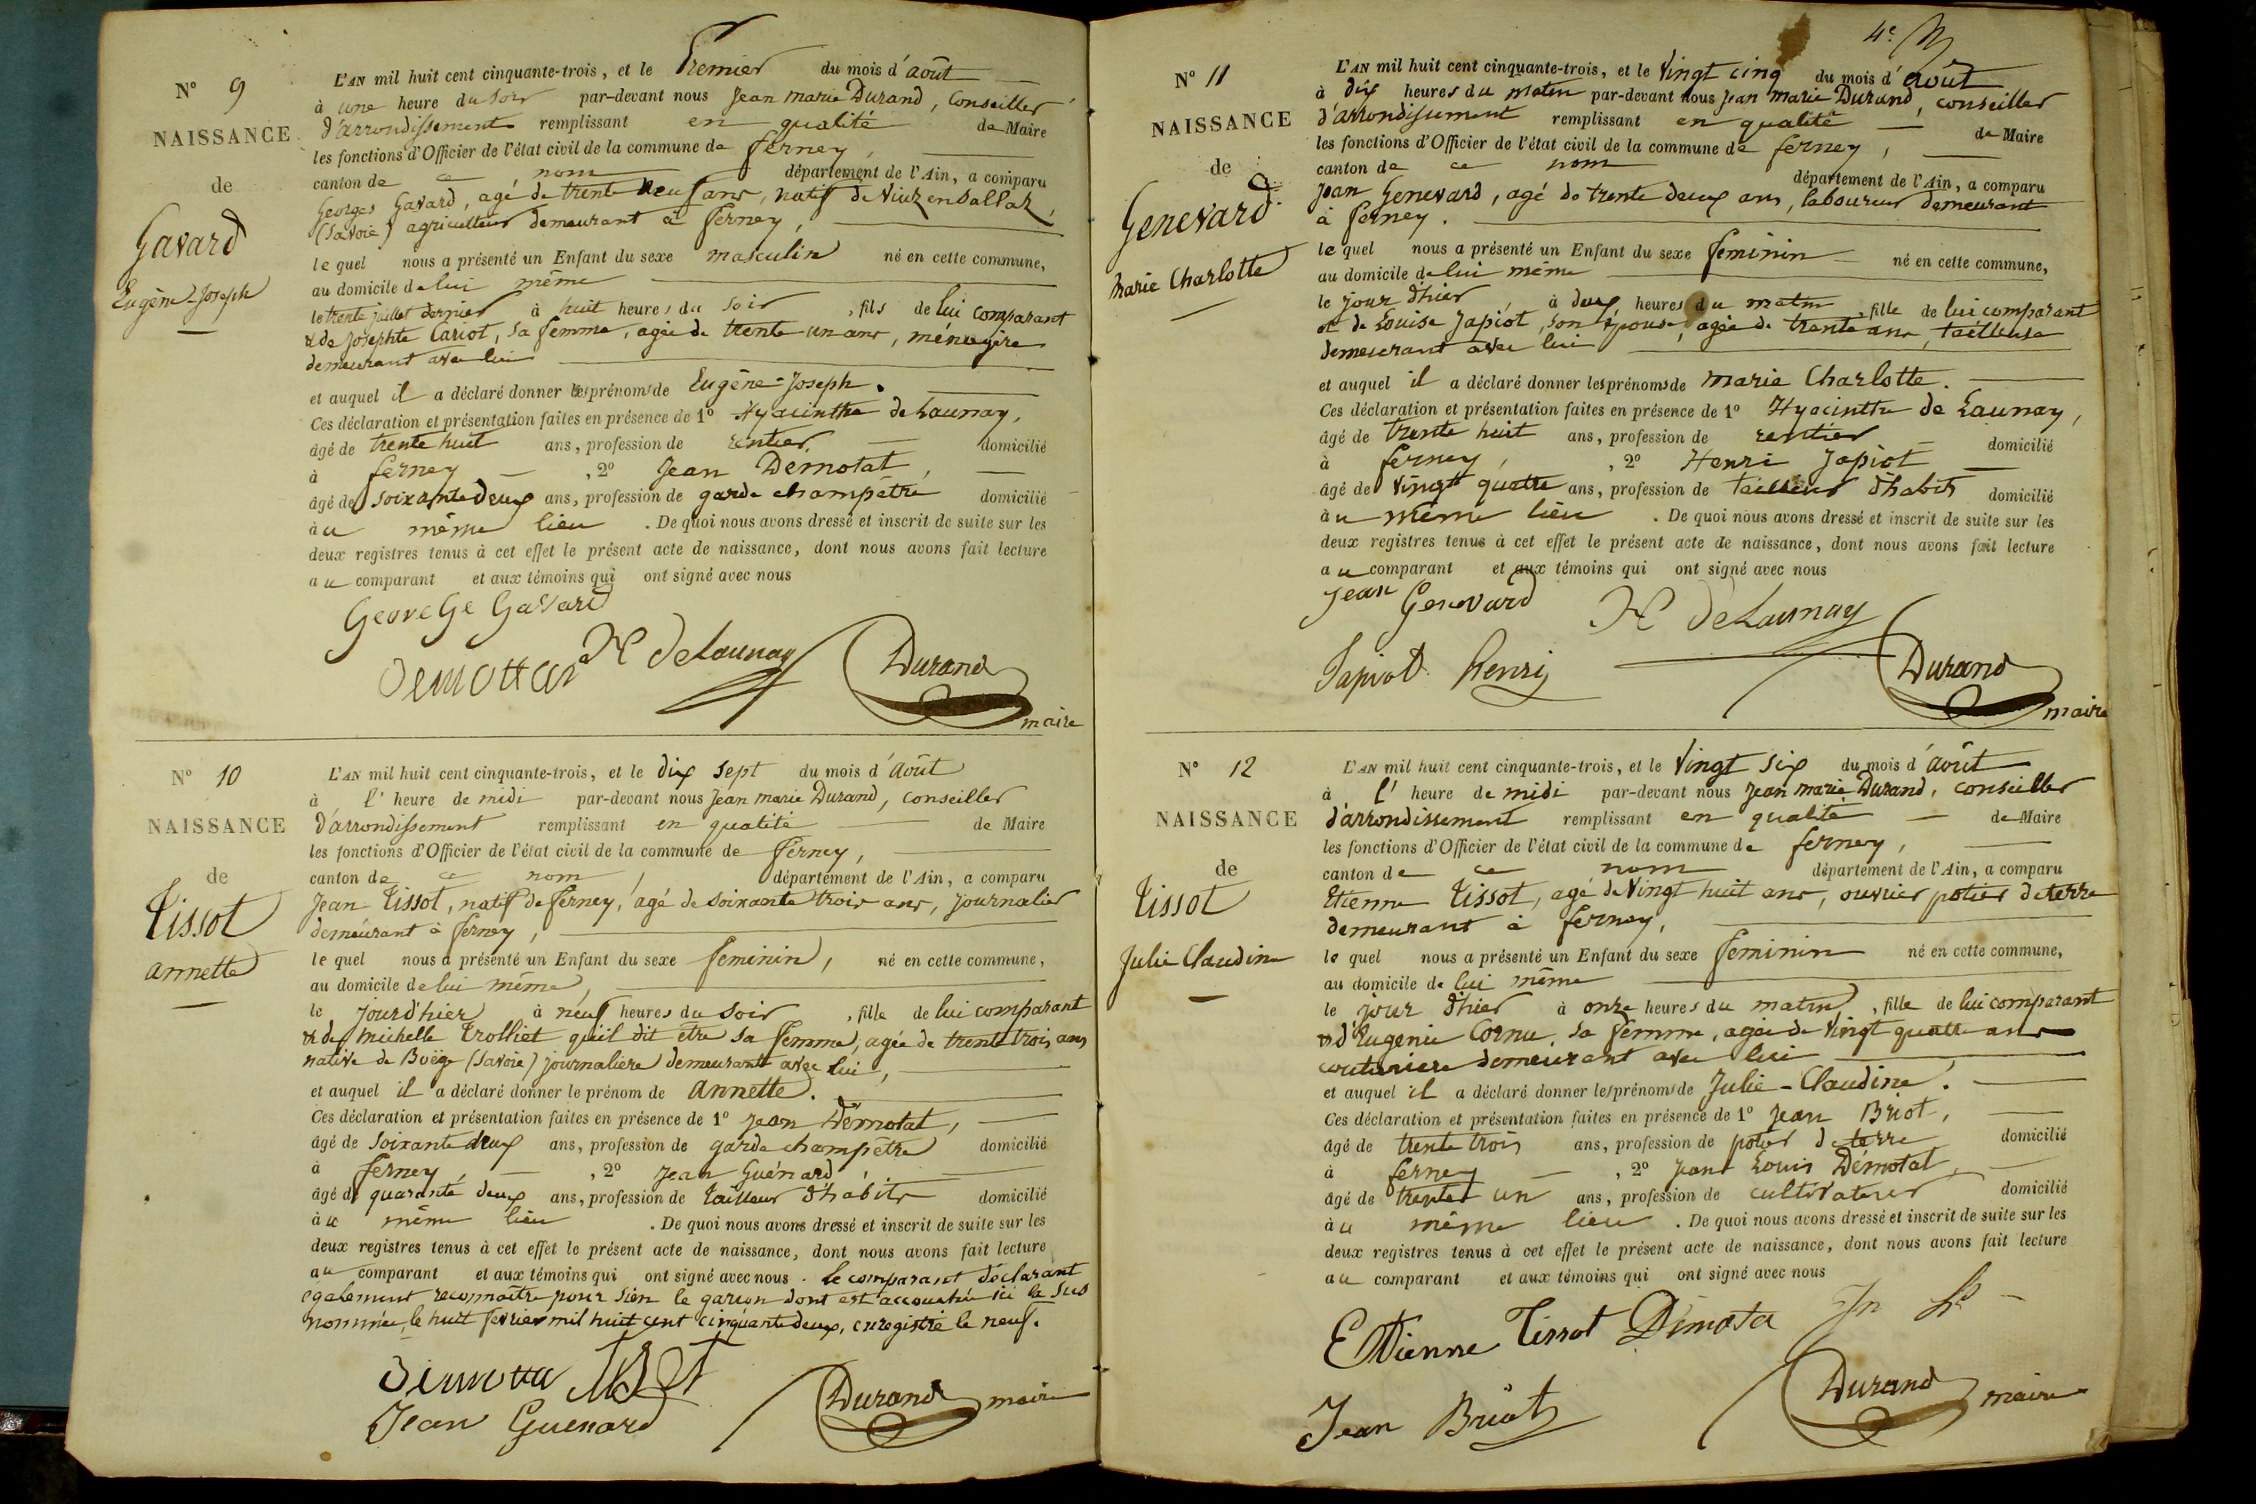 N° 9
NAISSANCE
de
Gavard
Eugène-Joseph
L'AN mil huit cent cinquante-trois, et le Premier du mois d'août
à une heure du soir par-devant nous Jean marie Durand, Conseiller
d'arrondissement remplissant en qualité de Maire
les fonctions d'Officier de l'état civil de la commune de ferney,
canton de ce nom département de l'Ain, a comparu
Georges Gavard, agé de trente neuf ans, natif de Viuz en Sallaz,
(Savoie) agriculteur demeurant à ferney,
le quel nous a présenté un Enfant du sexe masculin né en cette commune,
au domicile de lui même
le trente juillet dernier à huit heures du soir, fils de lui comparant
& de Josephte Cariot, sa femme, agée de trente-un ans, ménagère
demeurant avec lui
et auquel il a déclaré donner les prénoms de Eugène-Joseph.
Ces déclaration et présentation faites en présence de 1° Hyacinthe de Launay,
âgé de trente huit ans, profession de rentier domicilié
à ferney, 2° Jean Démotat,
âgé de soixante deux ans, profession de garde champêtre domicilié
au même lieu. De quoi nous avons dressé et inscrit de suite sur les
deux registres tenus à cet effet le présent acte de naissance, dont nous avons fait lecture
au comparant et aux témoins qui ont signé avec nous
George Gavard
H DeLaunay
Durand
maire
N° 10
NAISSANCE
de
Tissot
annette
L'AN mil huit cent cinquante-trois, et le dix sept du mois d'août
à l'heure de midi par-devant nous Jean marie Durand, conseiller
d'arrondissement remplissant en qualité de Maire
les fonctions d'Officier de l'état civil de la commune de ferney,
canton de ce nom, département de l'Ain, a comparu
Jean Tissot, natif de ferney, agé de soixante trois ans, journalier
demeurant à ferney,
le quel nous a présenté un Enfant du sexe feminin, né en cette commune,
au domicile de lui même,
le jourd'hier à neuf heures du soir, fille de lui comparant
& de Michelle Trolliet qu'il dit etre sa femme, agée de trente trois ans
native de Boëge (Savoie) journalière demeurant avec lui,
et auquel il a déclaré donner le prénom de annette.
Ces déclaration et présentation faites en présence de 1° Jean Démotat,
âgé de soixante deux ans, profession de garde champêtre domicilié
à ferney, 2° Jean Guénard,
âgé de quarante deux ans, profession de tailleur d'habits domicilié
au même lieu. De quoi nous avons dressé et inscrit de suite sur les
deux registres tenus à cet effet le présent acte de naissance, dont nous avons fait lecture
au comparant et aux témoins qui ont signé avec nous. le comparant déclarant
également reconnaître pour sien le garçon dont est accouchée ici la sus
nommée, le huit fevrier mil huit cent cinquante deux, enregistré le neuf.
Jean Guenard
Durand maire
4e
N° 11
NAISSANCE
de
Genevard
marie Charlotte
L'AN mil huit cent cinquante-trois, et le Vingt cinq du mois d'août
à dix heures du matin par-devant nous Jean marie Durand, conseiller
d'arrondissement remplissant en qualité de Maire
les fonctions d'Officier de l'état civil de la commune de ferney,
canton de ce nom département de l'Ain, a comparu
Jean Genevard, agé de trente deux ans, laboureur demeurant
à ferney.
le quel nous a présenté un Enfant du sexe feminin né en cette commune,
au domicile de lui même
le jour d'hier, à deux heures du matin, fille de lui comparant
et de Louise Japiot, son épouse, agée de trente ans, tailleuse
demeurant avec lui
et auquel il a déclaré donner les prénoms de Marie Charlotte.
Ces déclaration et présentation faites en présence de 1° Hyacinthe de Launay,
âgé de trente huit ans, profession de rentier domicilié
à ferney, 2° Henri Japiot
âgé de Vingt quatre ans, profession de tailleur d'habits domicilié
au même lieu. De quoi nous avons dressé et inscrit de suite sur les
deux registres tenus à cet effet le présent acte de naissance, dont nous avons fait lecture
au comparant et aux témoins qui ont signé avec nous
Jean Genevard H DeLaunay
Japiot Henri
Durand
maire
N° 12
NAISSANCE
de
Tissot
Julie Claudine
L'AN mil huit cent cinquante-trois, et le Vingt six du mois d'août
à l'heure de midi par-devant nous Jean marie Durand, conseiller
d'arrondissement remplissant en qualité de Maire
les fonctions d'Officier de l'état civil de la commune de ferney,
canton de ce nom département de l'Ain, a comparu
Etienne Tissot, agé de Vingt huit ans, ouvrier potier de terre
demeurant à ferney,
le quel nous a présenté un Enfant du sexe feminin né en cette commune,
au domicile de lui même
le jour d'hier à onze heures du matin, fille de lui comparant
& d'Eugenie Cornu, sa femme, agée de Vingt quatre ans
couturiere demeurant avec lui
et auquel il a déclaré donner les prénoms de Julie-Claudine.
Ces déclaration et présentation faites en présence de 1° Jean Briot,
âgé de trente trois ans, profession de potier de terre domicilié
à ferney, 2° Jean Louis Démotat,
âgé de trente un ans, profession de cultivateur domicilié
au même lieu. De quoi nous avons dressé et inscrit de suite sur les
deux registres tenus à cet effet le présent acte de naissance, dont nous avons fait lecture
au comparant et aux témoins qui ont signé avec nous
Etienne Tissot Démota
Jean Briot
Durand maire